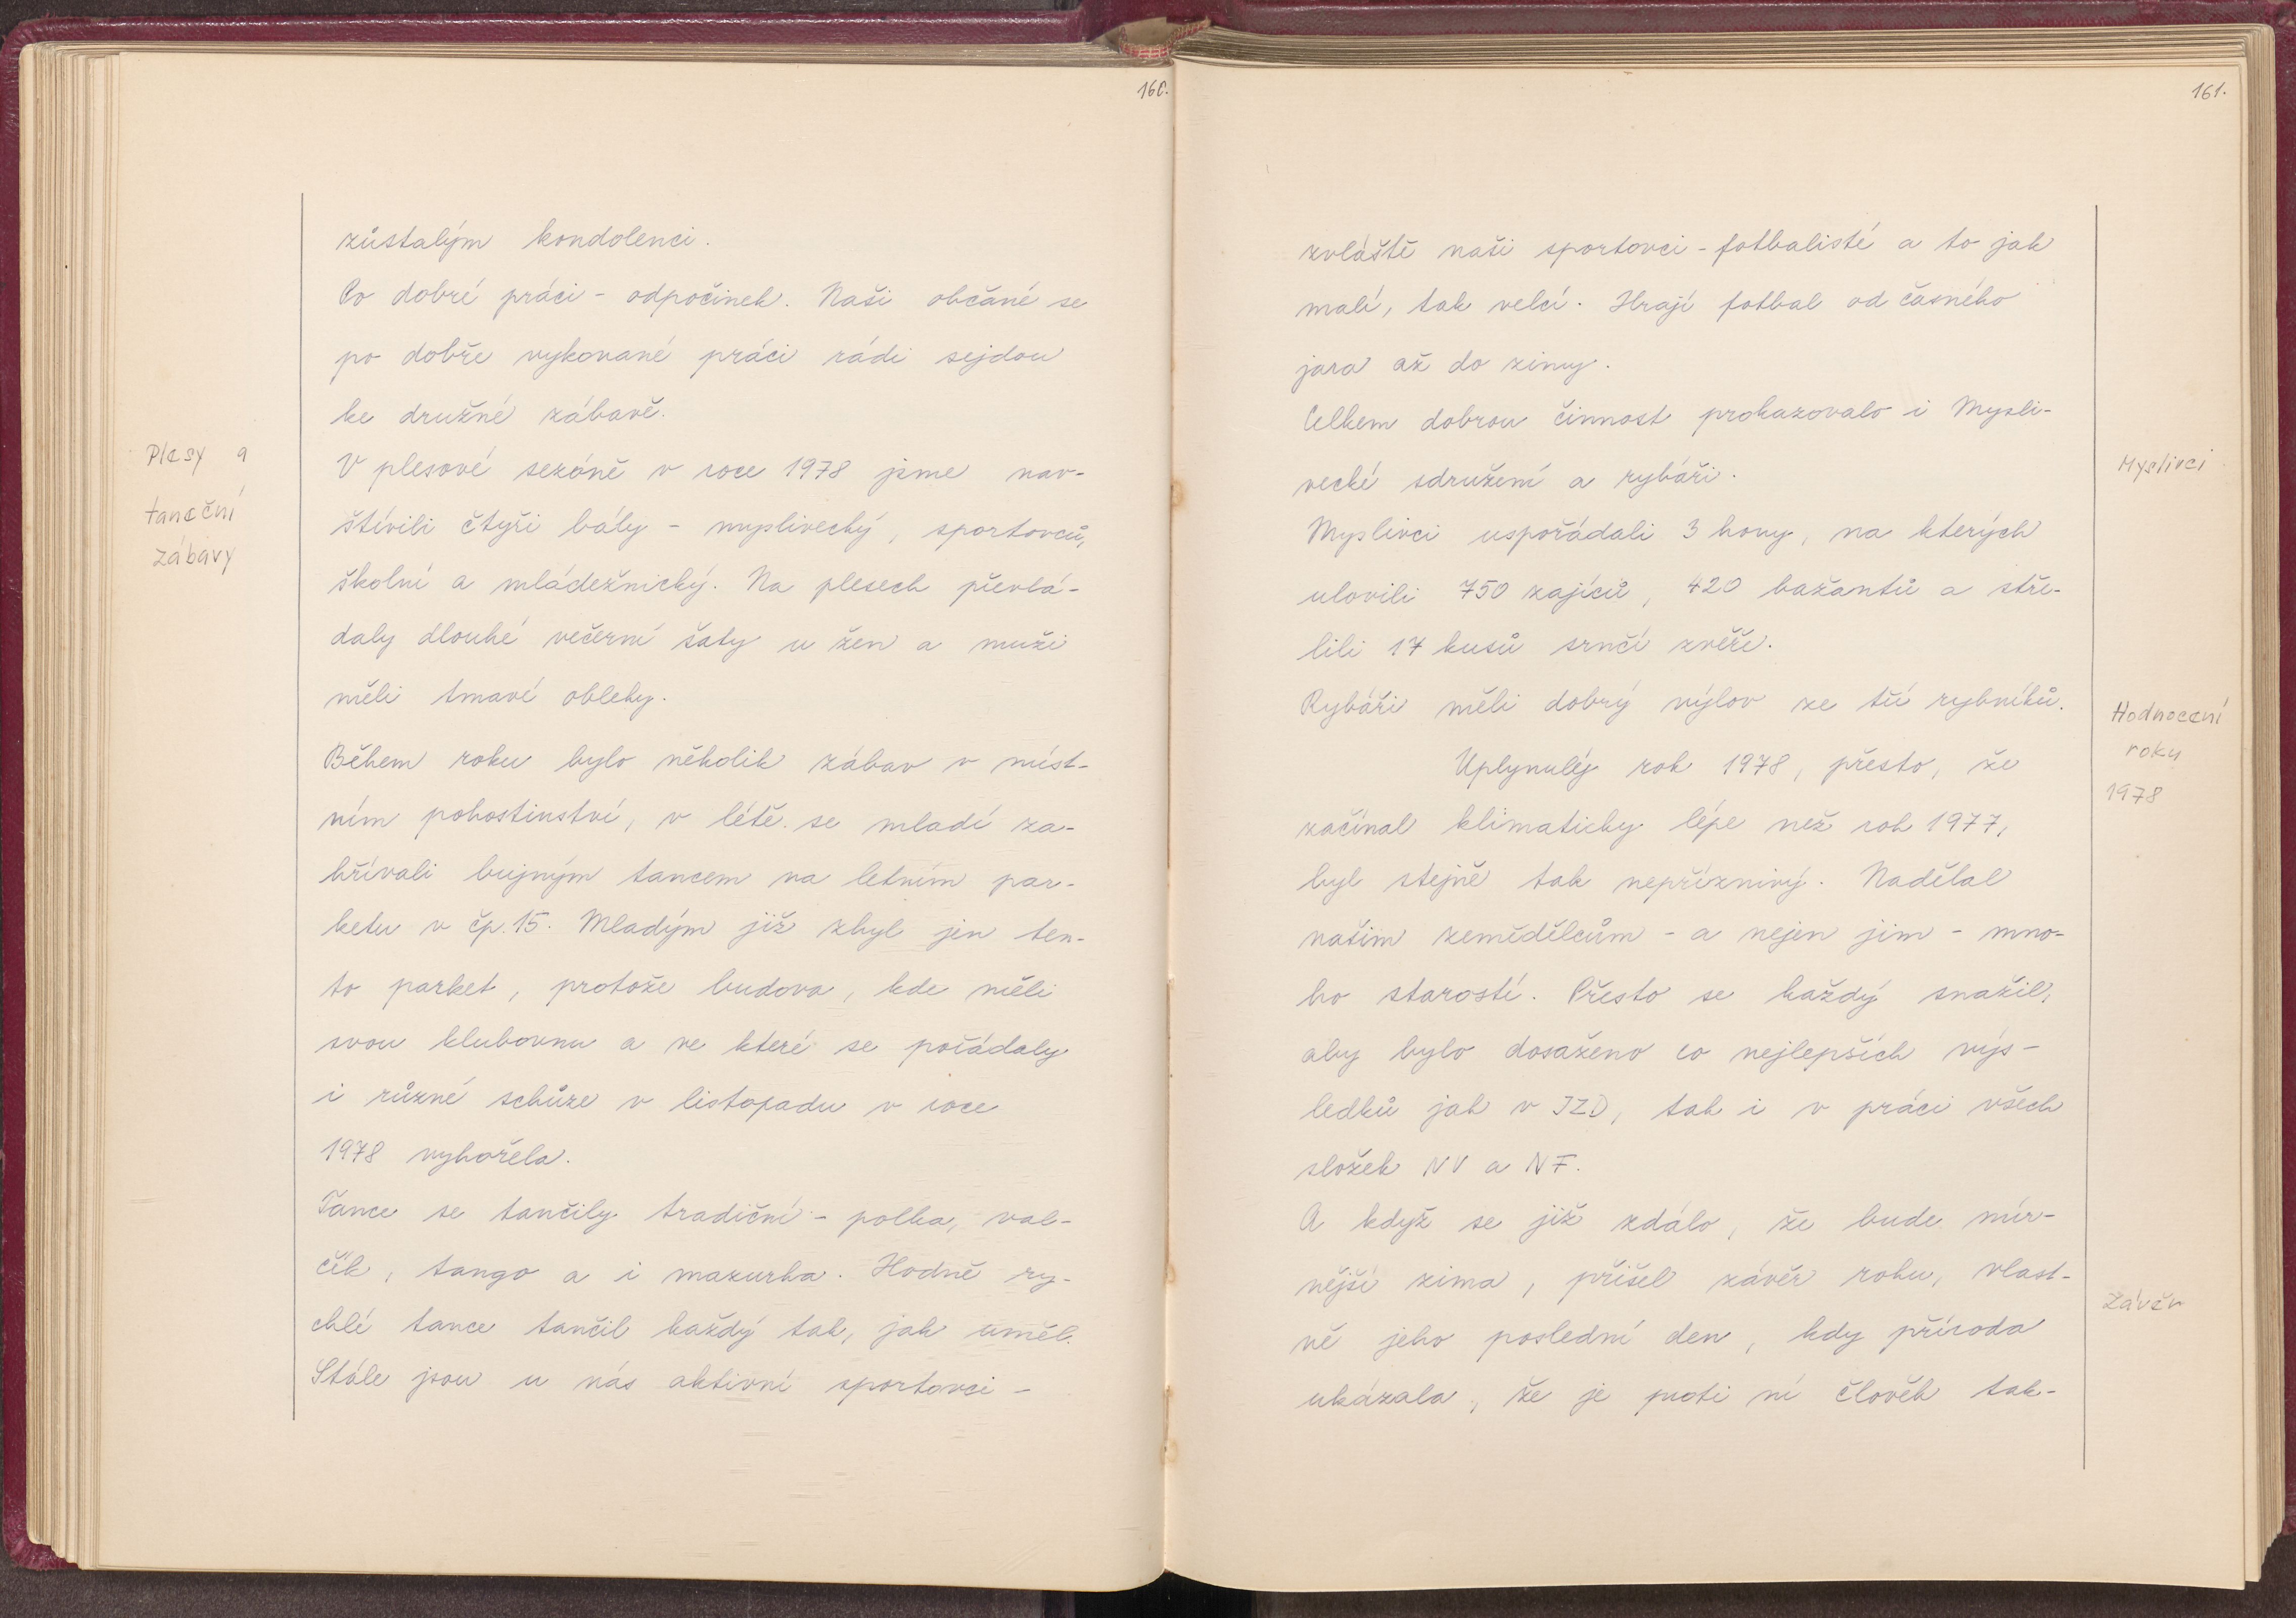 160.
zůstalým kondolenci.
Po dobré práci - odpočinek. Naši občané se
po dobře vykonané práci rádi sejdou
ke družné zábavě.
Plesy a
taneční
zábavy
V plesové sezóně v roce 1978 jsme nav-
štívili čtyři bály - myslivecký, sportovců,
školní a mládežnický. Na plesech převlá-
daly dlouhé večerní šaty u žen a muži
měli tmavé obleky.
Během roku bylo několik zábav v míst-
ním pohostinství, v létě se mladí za-
hřívali bujným tancem na letním par-
ketu v čp. 15. Mladým již zbyl jen ten-
to parket, protože budova, kde měli
svou klubovnu a ve které se pořádaly
i různé schůze v listopadu v roce
1978 vyhořela.
Tance se tančily tradiční - polka, val-
čík, tango a i mazurka. Hodně ry-
chlé tance tančil každý tak, jak uměl.
Stále jsou u nás aktivní sportovci -
161.
zvláště naši sportovci - fotbalisté a to jak
malí, tak velcí. Hrají fotbal od časného
jara až do zimy.
Celkem dobrou činnost prokazovalo i Mysli-
vecké sdružení a rybáři.
Myslivci
Myslivci uspořádali 3 hony, na kterých
ulovili 750 zajíců, 420 bažantů a stře-
lili 17 kusů srnčí zvěře.
Rybáři měli dobrý výlov ze tří rybníků.
Hodnocení
roku
1978
Uplynulý rok 1978, přesto, že
začínal klimaticky lépe než rok 1977,
byl stejně tak nepříznivý. Nadělal
našim zemědělcům - a nejen jim - mno-
ho starostí. Přesto se každý snažil,
aby bylo dosaženo co nejlepších výs-
ledků jak v JZD, tak i v práci všech
složek NV a NF.
A když se již zdálo, že bude mír-
nější zima, přišel závěr roku, vlast-
Závěr
ně jeho poslední den, kdy příroda
ukázala, že je proti ní člověk tak-